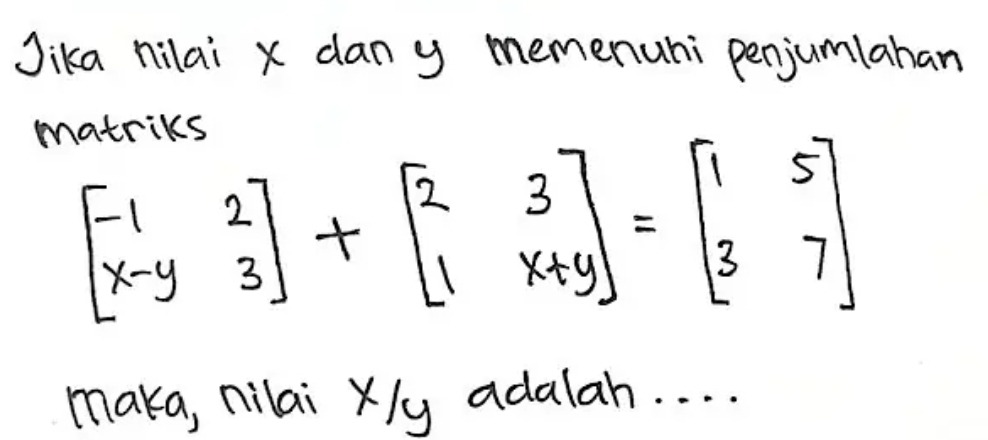 Jika nilai x dan y memenuhi penjumlahan
matriks
[-1 2] + [2 3] = [1 5]
[x-y 3] [1 x+y] [3 7]
maka, nilai x/y adalah ....